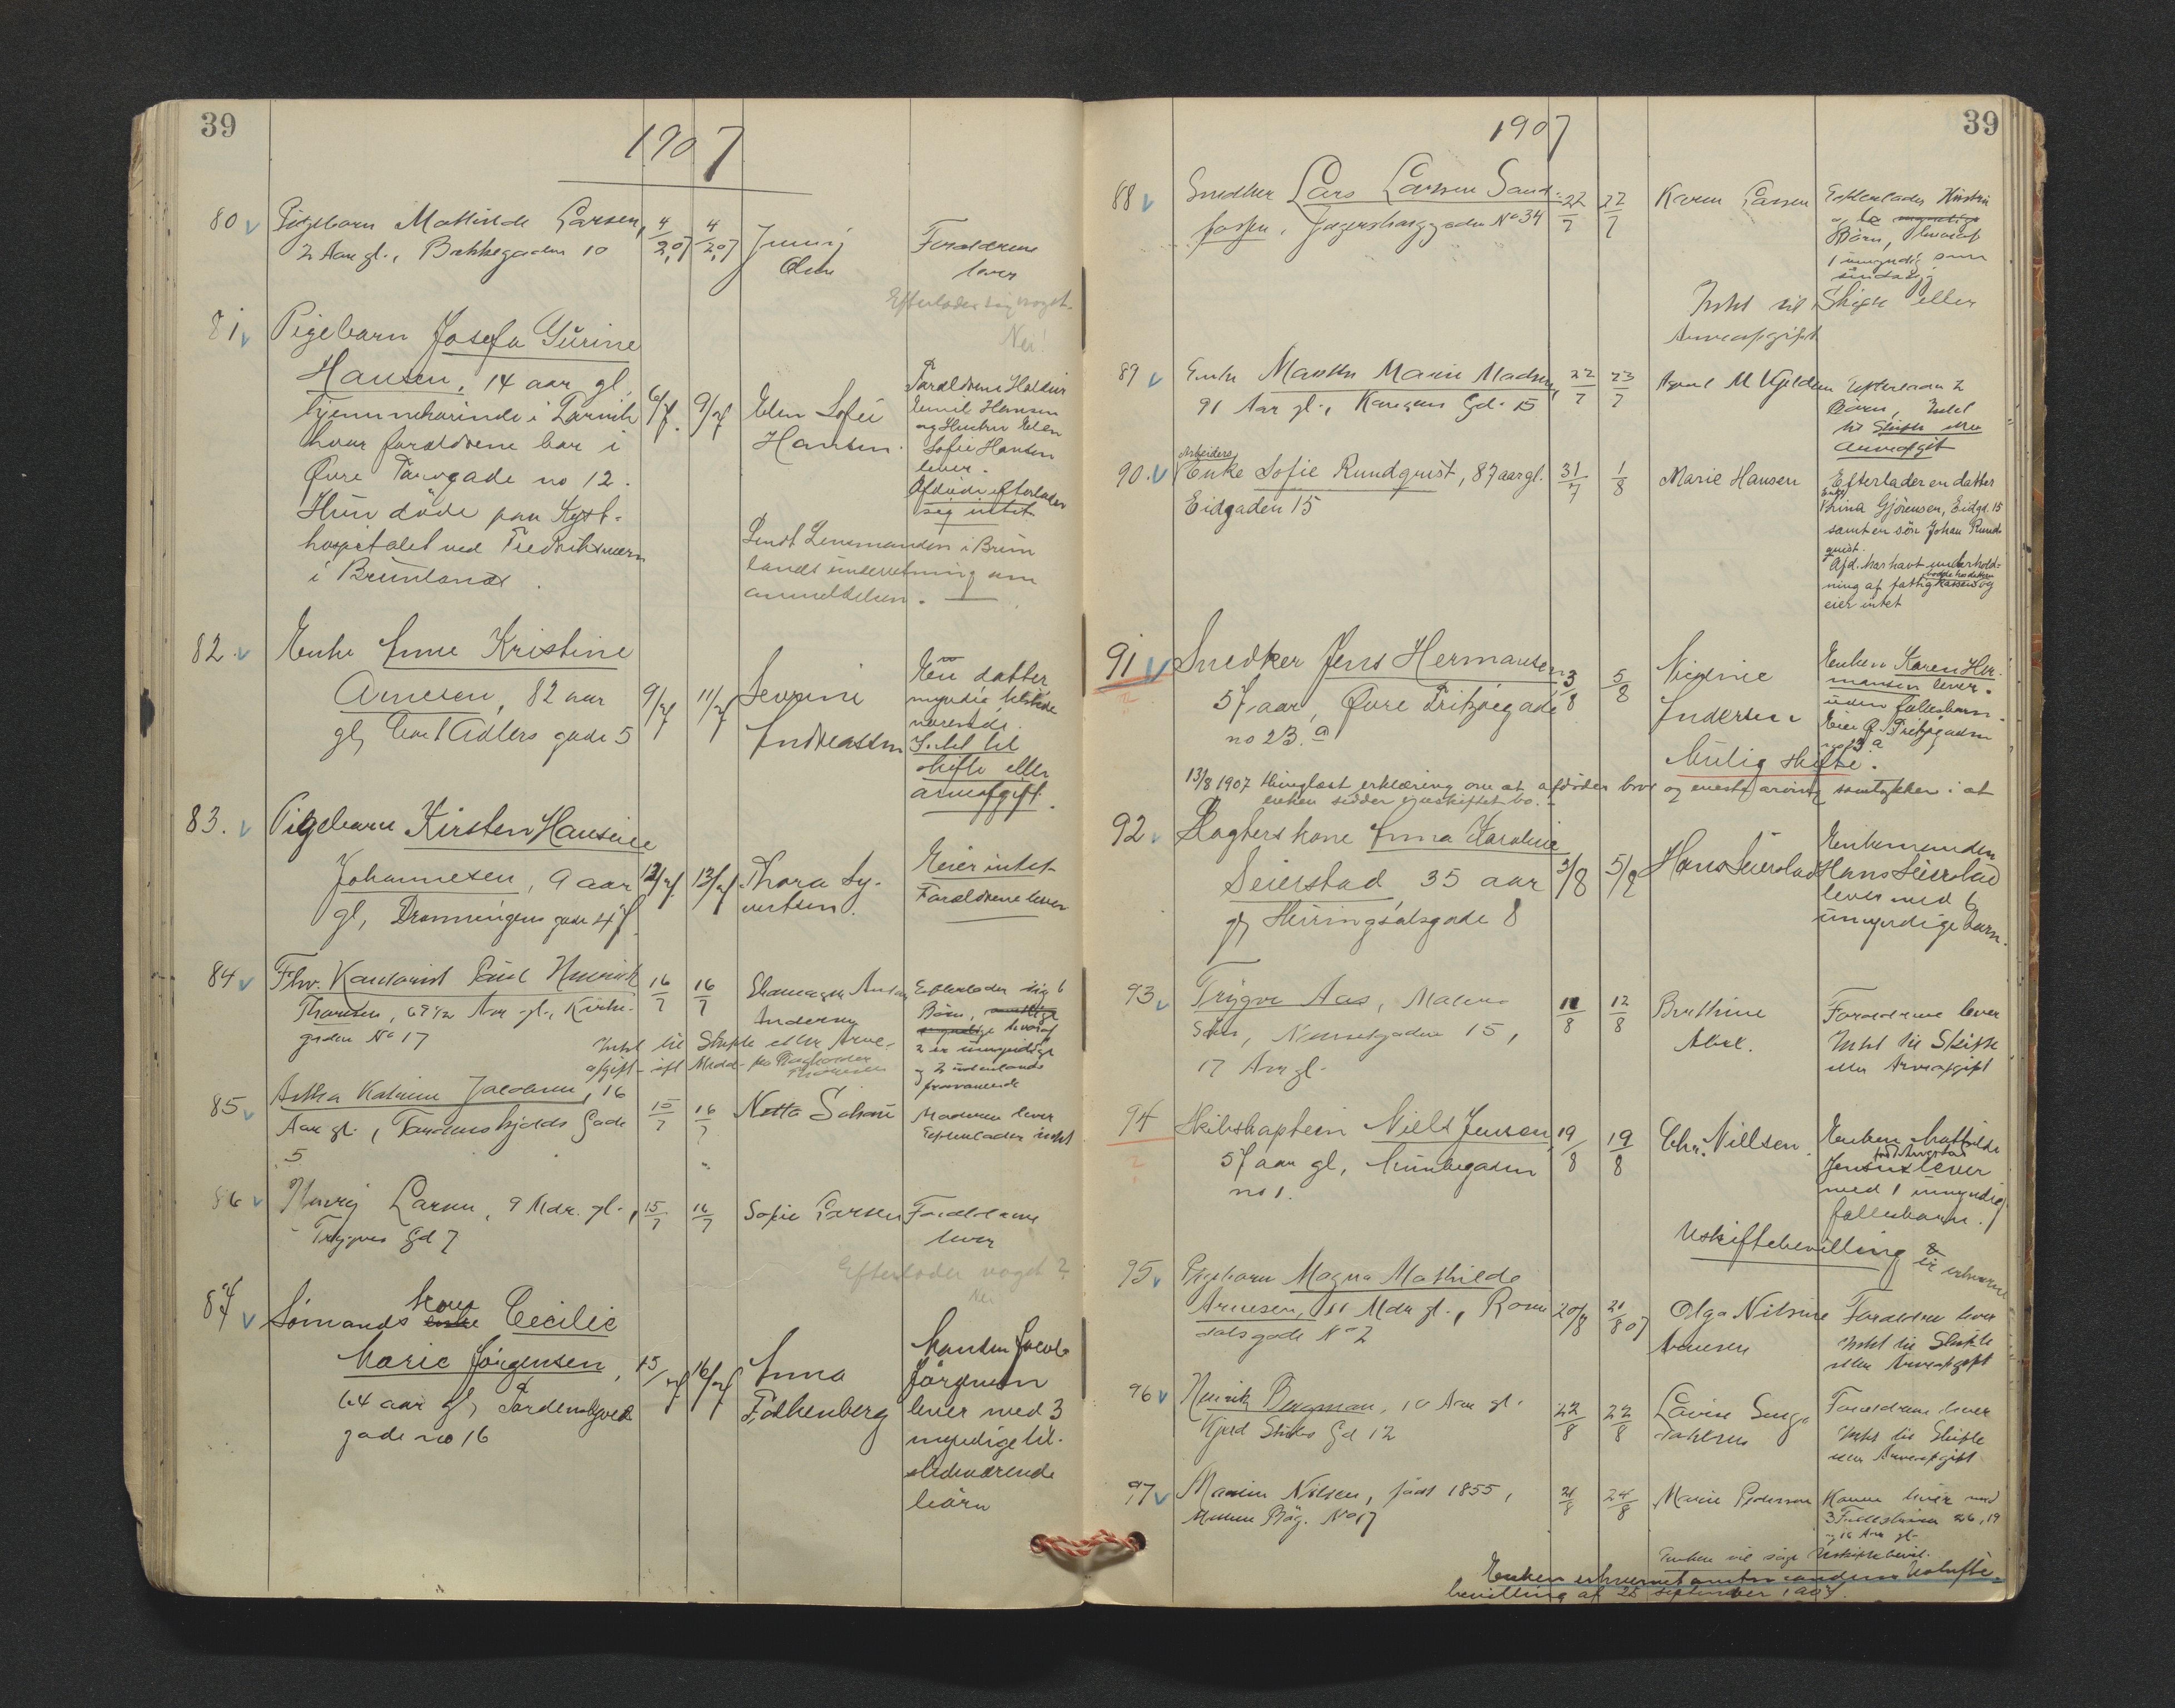 39
1907
80 v Pigebarn Mathilde Larsen, 4/7 07 4/7 07 Jenny Foreldrene
2 Aar gl., Bakkegaden 10 Olsen lever
Efterlader sig noget.
Nei!
81 v Pigebarn Josefa Gurine
Hansen, 14 aar gl, 6/7. 9/7 Elen Sofie Hansen. Forældrene
hjemmehørende i Larvik
hvor forældrene bor i
Øvre Torvgade no 12.
Hun døde paa Kyst-
hospitalet ved Fredriksværn
i Brunlanæs.
Emil Hansen
og Hustru Elen
Sofie Hansen
lever.
Afdøde efterlader
sig intet
Sendt Lensmanden i Brun
landt underretning om
anmeldelsen.
82. v Enke Anne Kristine
Arnesen, 82 aar 9/7 11/7 Severine
gl, Adlers gade 5 Andreassen
Een datter
myndig tilstede
værende.
Intet til
skifte eller
arveafgift.
83. v Pigebarn Kirsten Hansine
Johannesen, 9 aar 12/7 13/7 Thora Sy-
gl, Dronningens gade 47. vertsen.
Eier intet
Forældrene lever
84 v Fhv. Paul Henrik 16/7 16/7
Thorsen, 69 1/2 Aar gl., Kirke-
gaden No 17
Andersen
Efterlader sig 6
Børn, hvoraf
2 er umyndige
og 2 udenlands
fraværende
Intet til Skifte eller Arve-
afgift
85 v Astha Katrine Jacobsen, 16 15/7 16/7 Netta Schou Moderen lever
Aar gl., Tordenskjolds Gade Efterlader intet
5
86 v Henry Larsen, 9 Mdr. gl., 15/7 16/7 Sofie Larsen Foreldrene
Trygves Gd 7 lever
Efterlader noget?
Nei
87 v Sømands kone enke Cecilie
Marie Jørgensen, 15/7 16/7 Anna
64 aar gl, Tordenskjolds Falkenberg
gade no 16
Manden Jacob
Jørgensen
lever med 3
myndige til-
stedeværende
børn
39
1907
88 v Snedker Lars Larsen Sand- 22/7 22/7 Karen Larsen Efterlader Hustru
fossen, No 34
og 6 myndige
Børn, hvoraf
1 umyndig søn
Intet til Skifte eller
Arveafgift
89 v Enke Marthe Marie Madsen, 22/7 23/7 Efterlader 2
91 Aar gl., Gd. 15
Børn, Intet
til Skifte eller
arveafgift
90. v Arbeiders
Enke Sofie Rundquist, 87 aar gl. 31/7 1/8 Marie Hansen Efterlader en datter
Eidgaden 15
Enke
Gjörensen, Eidgd. 15
samt en søn Johan Rund-
quist.
Afd. har havt underhold-
ning af fattigkassen og
bodde hos datteren
eier intet
91 v Snedker Jens Hermansen 3/8 5/8
57 aar, Øvre Fritzøegade Andersen
no 23. a
Enken Karen Her-
mansen lever.
uden fællesbarn.
Eier Ø. Fritzøegaden
no 23 a
Mulig skifte.
13/8 1907 thinglæst erklæring om at afdødes bror og eneste arving samtykker i at
enken sidder i uskiftet bo.
92 v Slagters kone Anna Karoline
Seierstad, 35 aar 3/8 5/8 Hans Seierstad
gl, Herringsdalsgade 8
Enkemanden
Hans Seierstad
lever med 6
umyndige børn.
93 v Trygve Aas, Malers 11/8 12/8 Berthine Foreldrene lever
Søn, Nansetgaden 15, Intet til Skifte
17 Aar gl. eller Arveafgift
94 Skibskaptein Niels Jensen, 19/8 19/8 Chr. Nielsen.
57 aar gl, Munkegaden
no 1.
Enken Mathilde
Jensen
lever
med 1 umyndig
fællesbarn.
Uskiftebevilling er erhvervet
95 v Pigebarn Magna Mathilde
Arnesen, 11 Mdr gl., Roms- 20/8 21/8 07 Olga Nilsine Forældrene lever
dalsgade No 2 Arnesen Intet til Skifte
eller Arveafgift
96 v Henrik Bergman, 10 Aar gl. 22/8 22/8 Forældrene lever
Kjeld Stubs Gd 12 Intet til Skifte
eller Arveafgift
97 v Nilsen, født 1855, 21/8 24/8 Marie Pedersen Konen lever med
No 17 3 Fællesbørn 26, 19
og 16 Aar gl.
Enken vil søge Uskiftebevil.
Enken erhvervet amtmandens Uskifte-
bevilling af 25 september 1907.